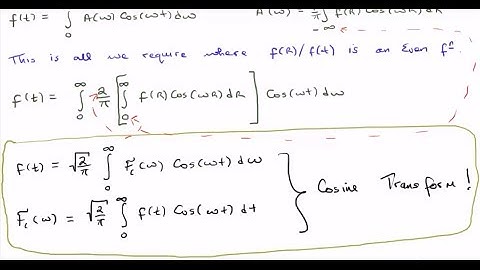 f(t) = ∫₀^∞ A(ω) Cos(ωt) dω    A(ω) = 1/π ∫_{-∞} f(R) Cos(ωR) dR
This is all we require where f(R)/f(t) is an Even fⁿ.
f(t) = ∫₀^∞ 2/π [ ∫₀^∞ f(R) Cos(ωR) dR ] Cos(ωt) dω
f(t) = √(2/π) ∫₀^∞ F_c(ω) Cos(ωt) dω
F_c(ω) = √(2/π) ∫₀^∞ f(t) Cos(ωt) dt
} Cosine Transform!